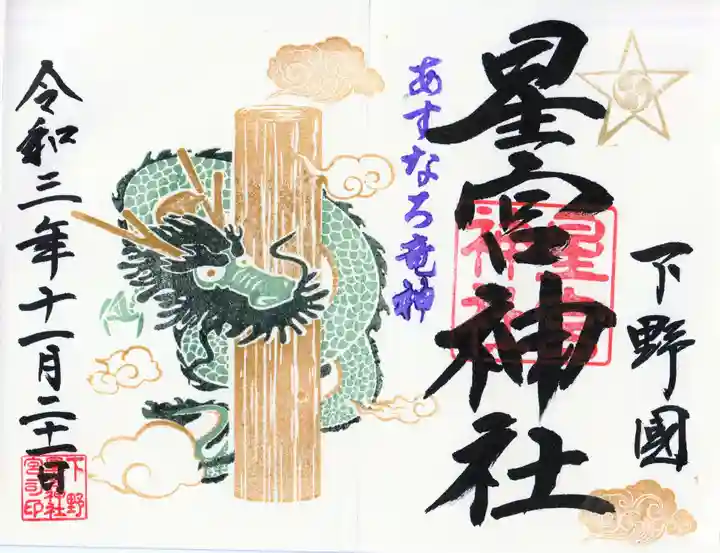 下野國
星宮神社
あすなろ竜神
令和三年十一月二十一日
星宮
神社
下野
星宮神社
宮司印